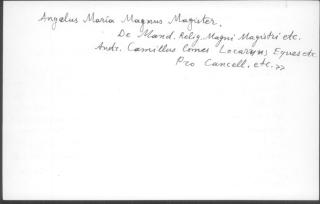 Angelus Maria Magnus Magister.
De Mand. Relig. Magni Magistri etc.
Andr. Camillus Comes Locarum, Eques etc
Pro Cancell. etc.>>